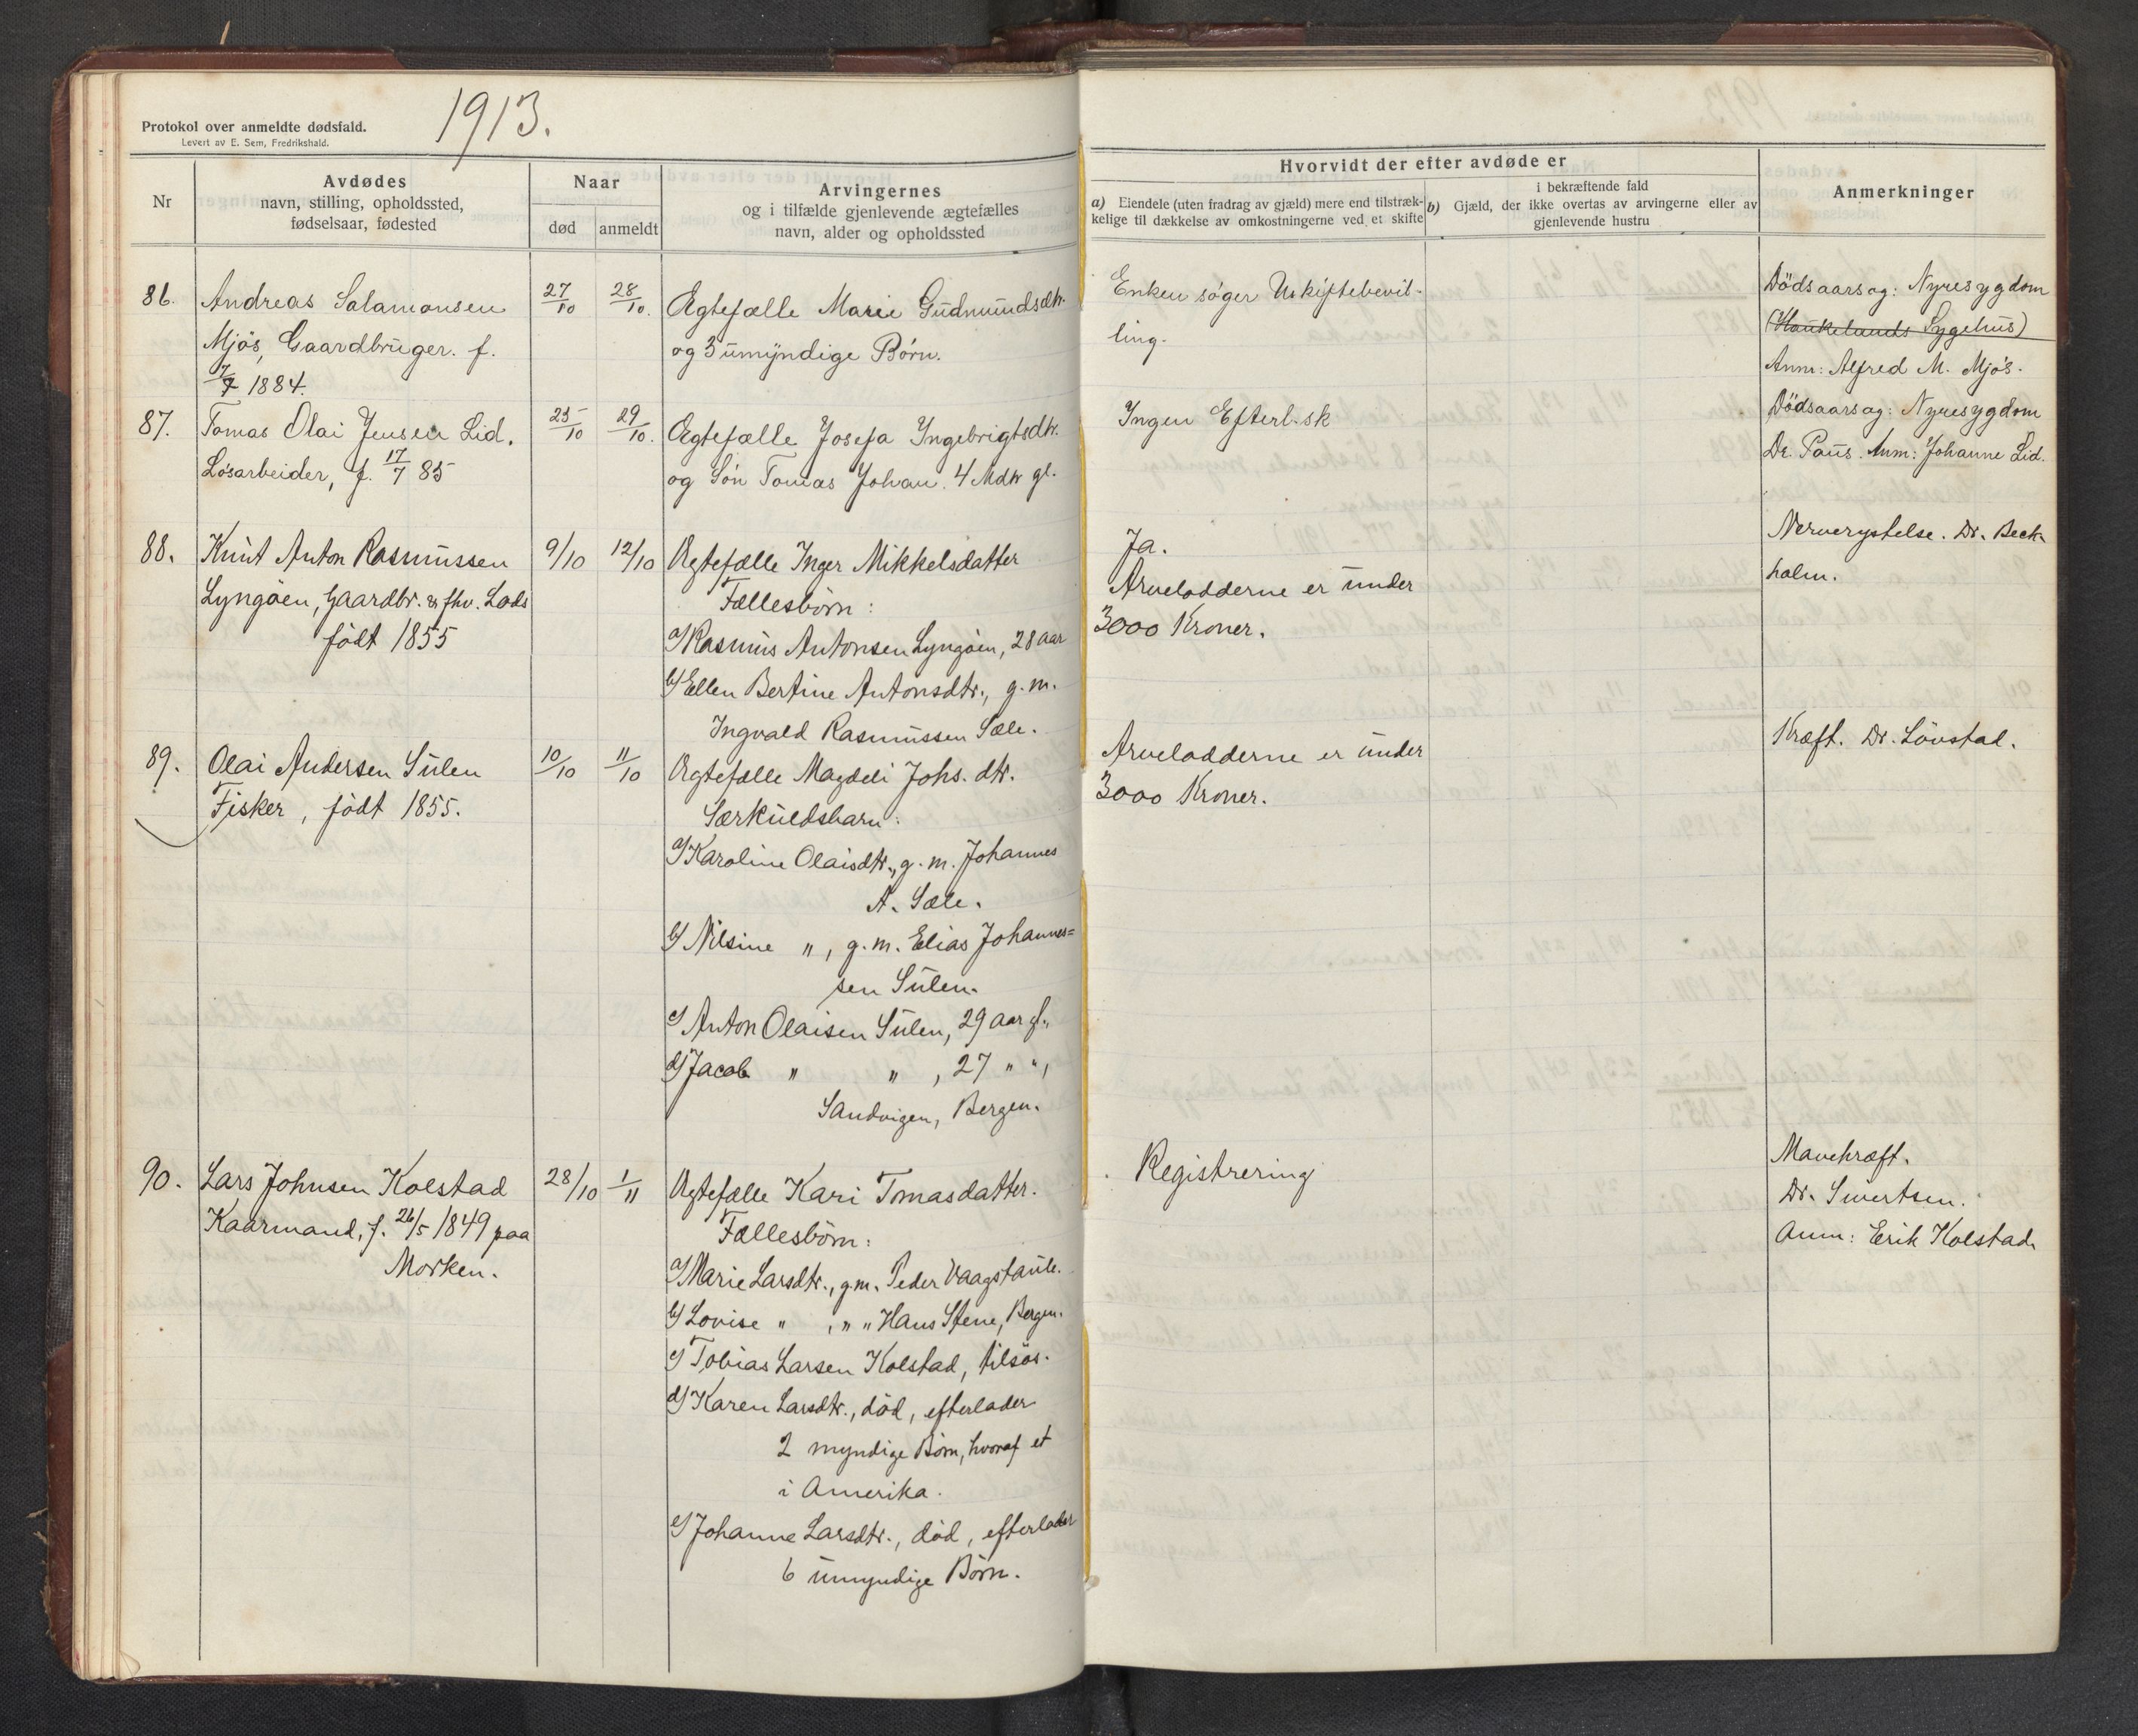 1913.
Protokol over anmeldte dødsfald.
Levert av E. Sem, Fredrikshald.
Nr
Avdødes
navn, stilling, opholdssted,
fødselsaar, fødested
Naar
død
anmeldt
Arvingernes
og i tilfælde gjenlevende ægtefælles
navn, alder og opholdssted
Hvorvidt der efter avdøde er
a) Eiendele (uten fradrag av gjæld) mere end tilstræk-
kelige til dækkelse av omkostningerne ved et skifte
i bekræftende fald
b) Gjæld, der ikke overtas av arvingerne eller av
gjenlevende hustru
Anmerkninger
86.
Andreas Salamonsen
Mjös, Gaardbruger. f.
7/7 1884.
27/10
28/10.
Ægtefælle Marie Gudmundsdtr.
og 3 umyndige Børn.
Enken søger Uskiftebevil-
ling.
Dödsaarsag: Nyresygdom
(Haukelands Sygehus)
Anm: Alfred M. Mjøs.
87.
Tomas Olai Jensen Lid.
Løsarbeider, f. 17/7 85
25/10
29/10.
Ægtefælle Josefa Ingebrigtsdtr.
og Søn Tomas Johan. 4 Mdr gl.
Ingen Efterl.sk
Dödsaarsag: Nyresygdom
Dr. Paus. Anm: Johanne Lid.
88.
Knut Anton Rasmussen
Lyngöen, Gaardbr. & fhv. Lods
födt 1855
9/10
12/10
Ægtefælle Inger Mikkelsdatter
Fællesbörn:
a/ Rasmus Antonsen Lyngöen, 28 aar
b/ Ellen Bertine Antonsdtr., g. m.
Ingvald Rasmussen Sæle.
Ja.
Arvelodderne er under
3000 Kroner.
Nerverystelse. Dr. Beck-
holm.
89.
Olai Andersen Sulen
Fisker, födt 1855.
10/10
11/10
Ægtefælle Magdeli Johs. dtr.
Særkuldsbarn:
a/ Karoline Olaisdtr., g. m. Johannes
A. Sæle.
b/ Nilsine ", g. m. Elias Johannes=
sen Sulen.
c/ Anton Olaisen Sulen, 29 aar gl.,
d/ Jacob " " , 27 " ",
Sandvigen, Bergen.
Arvelodderne er under
3000 Kroner.
Kræft. Dr. Lövstad.
90.
Lars Johnsen Kolstad
Kaarmand, f. 26/5 1849 paa
Morken.
28/10
1/11
Ægtefælle Kari Tomasdatter.
Fællesbörn:
a/ Marie Larsdtr., g.m. Peder Vaagstaule.
b/ Lovise " , " " Hans Stene, Bergen.
c/ Tobias Larsen Kolstad, tilsös.
d/ Karen Larsdtr., död, efterlader
2 myndige Börn, hvoraf et
i Amerika.
e/ Johanne Larsdtr., död, efterlader
6 umyndige Börn.
Registrering
Mavekræft.
Dr. Sivertsen.
Anm: Erik Kolstad.